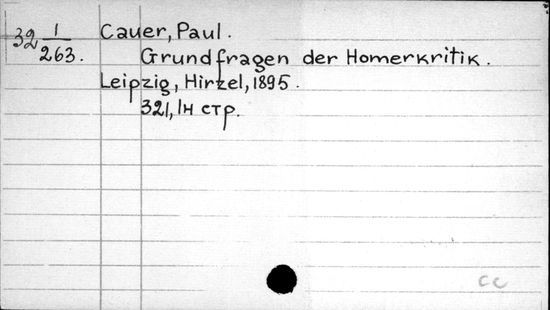 32 1/263.
Cauer, Paul.
Grundfragen der Homerkritik.
Leipzig, Hirzel, 1895.
321, 1н стр.
cc